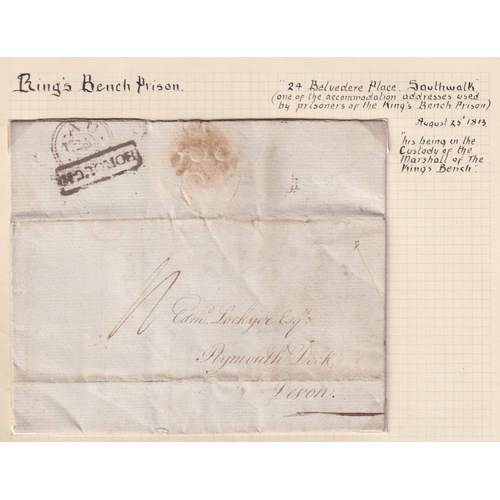 King's Bench Prison.
"24 Belvedere Place. Southwalk"
(one of the accommodation addresses used
by prisoners of the King's Bench Prison)
August 25' 1813
"his being in the
Custody of the
Marshall of The
King's Bench".
BOROUGH
Edmd. Lockyer Esqr.
Plymouth Dock
Devon.